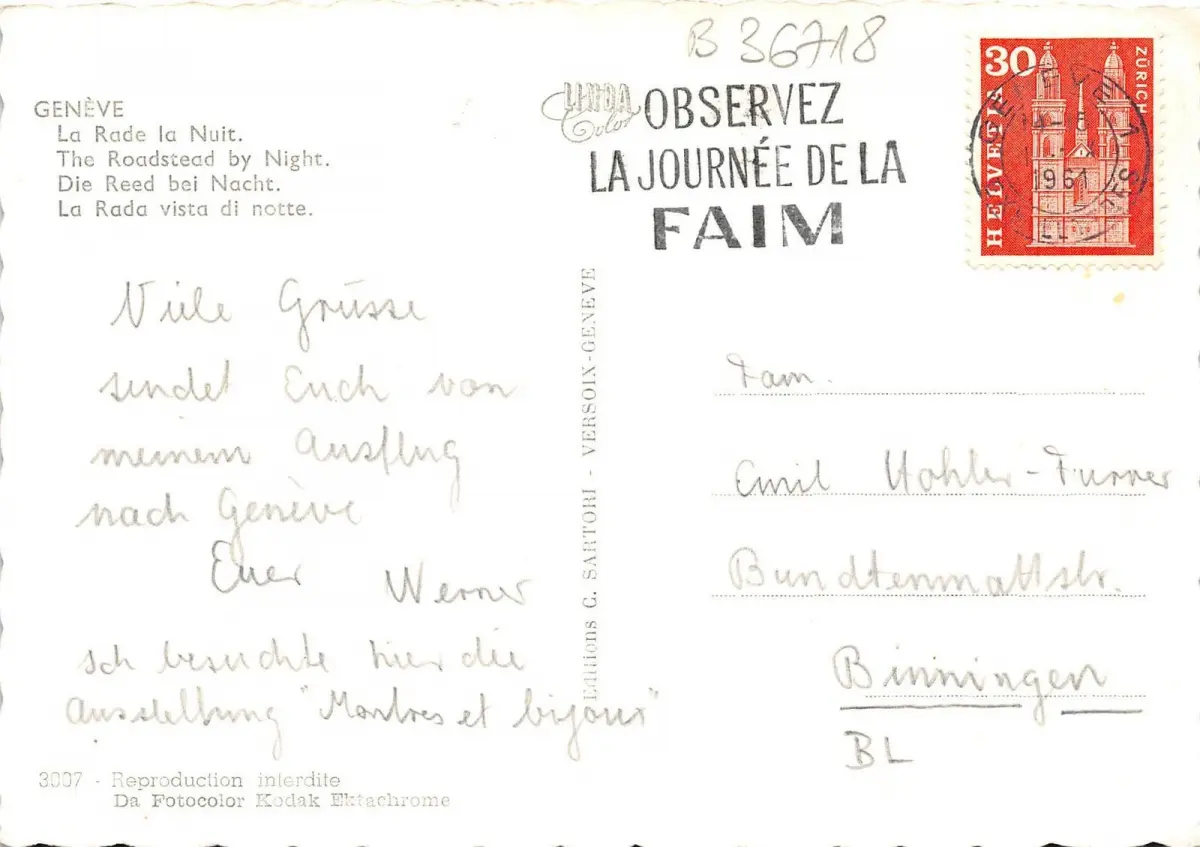 B 36718
GENÈVE
La Rade la Nuit.
The Roadstead by Night.
Die Reed bei Nacht.
La Rada vista di notte.
LINDA
Color
OBSERVEZ
LA JOURNÉE DE LA
FAIM
30
ZÜRICH
HELVETIA
GENÈVE 1
1961
Viele Grüsse
sendet Euch von
meinem Ausflug
nach Genève
Euer Werner
Ich besuchte hier die
Ausstellung "Montres et bijoux"
Editions G. SARTORI - VERSOIX-GENEVE
Fam.
Emil Hohler-Furrer
Bundtenmattstr.
Binningen
BL
3007 - Reproduction interdite
Da Fotocolor Kodak Ektachrome